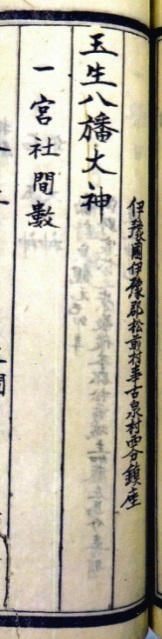 伊豫國伊豫郡松前村奉古泉村両分鎮座
玉生八幡大神
一宮社間數